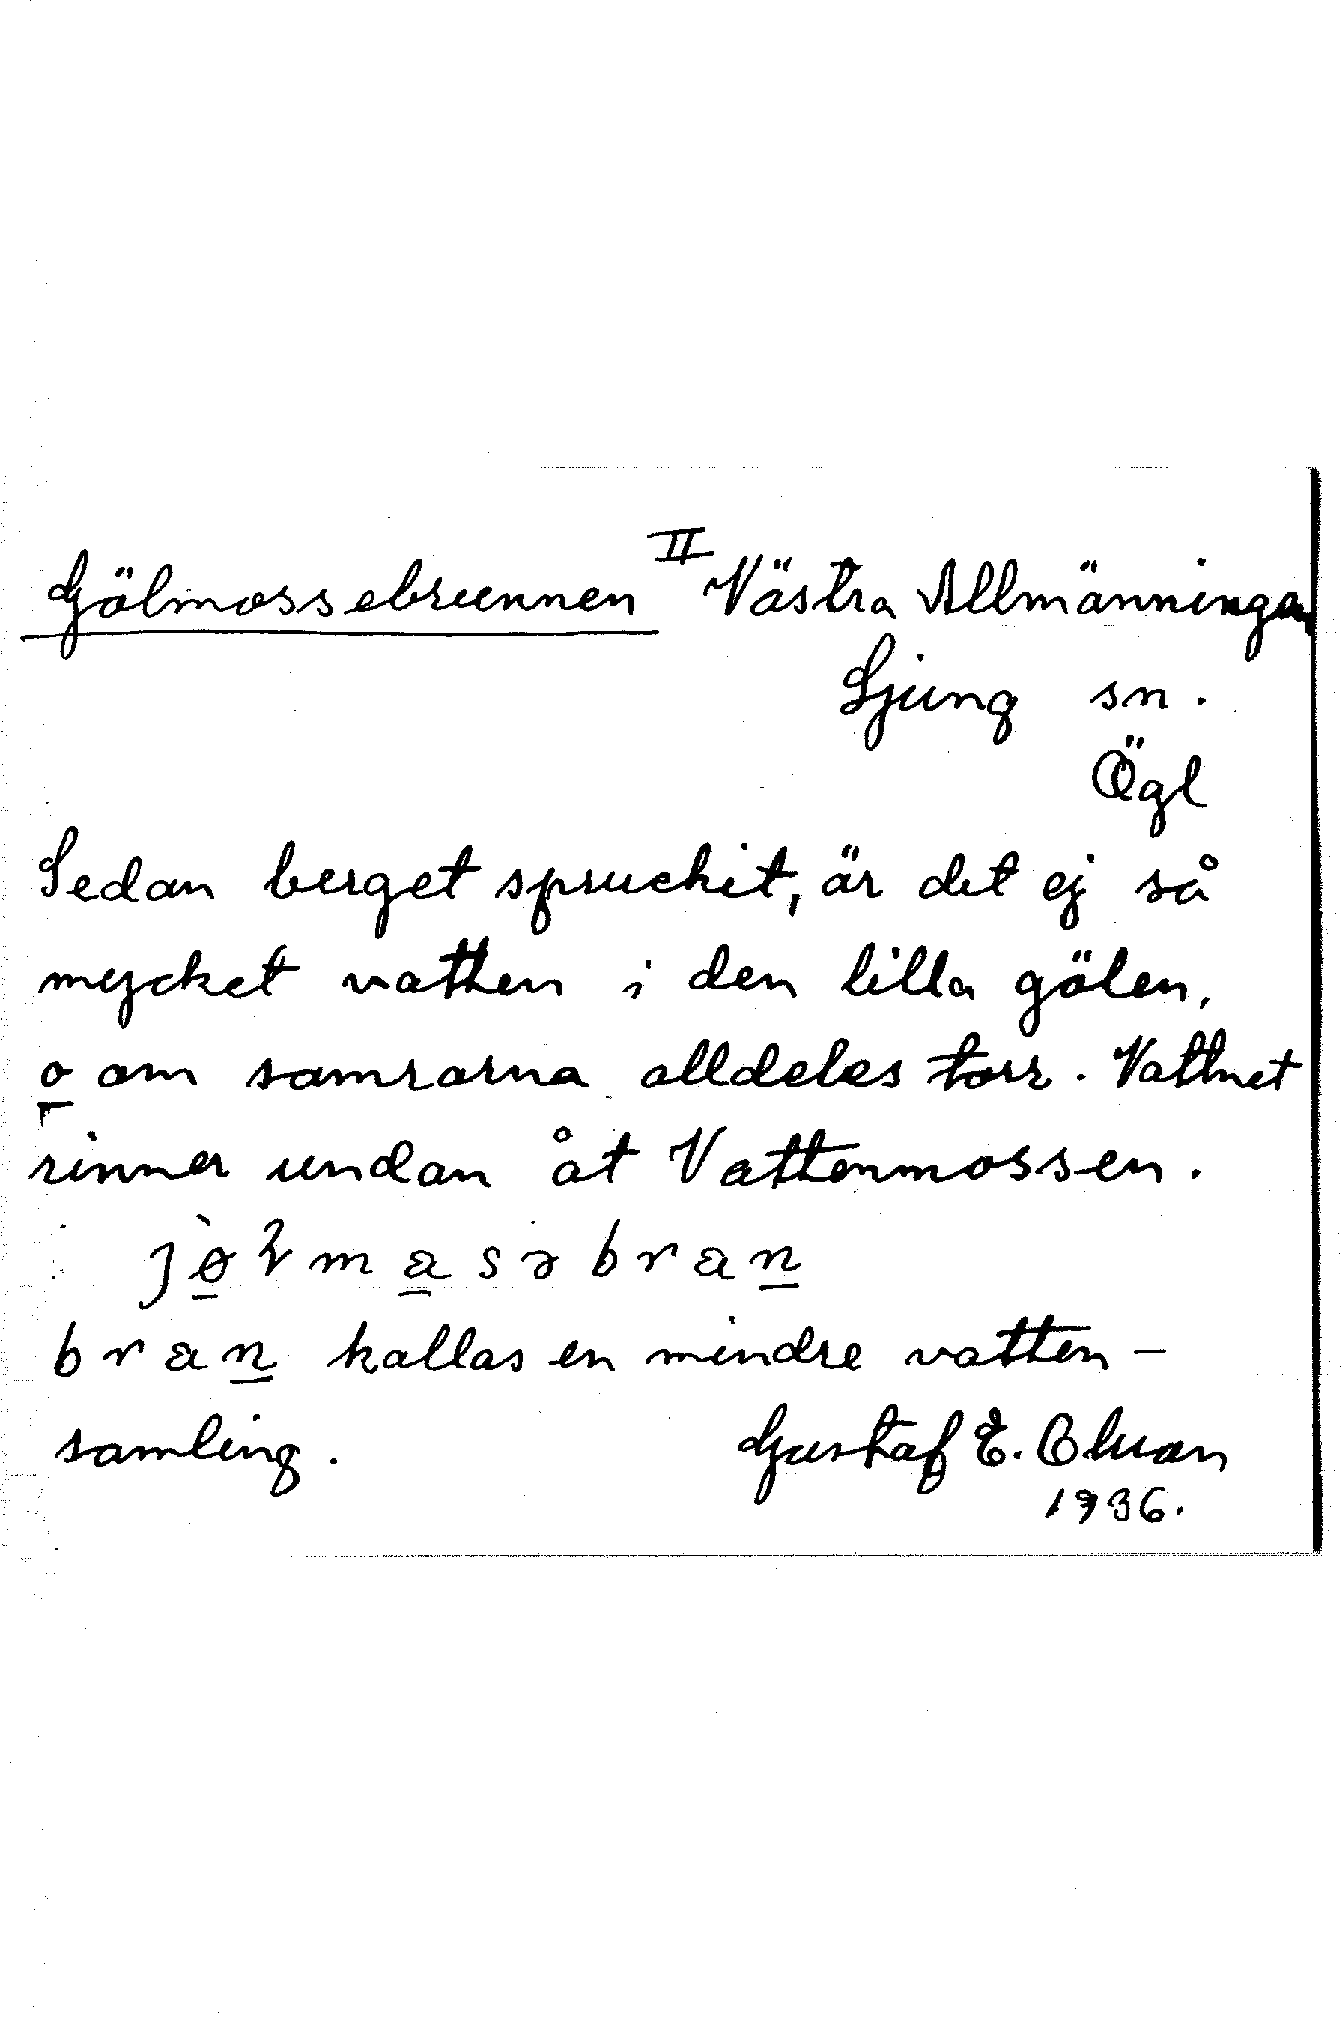 Gölmossebrunnen II Västra Allmänningen
Ljung sn.
Ögl
Sedan berget spruckit, är det ej så
mycket vatten i den lilla gölen,
o om somrarna alldeles torr. Vattnet
rinner undan åt Vattenmossen.
kallas en mindre vatten-
samling. Gustaf E.
1936.